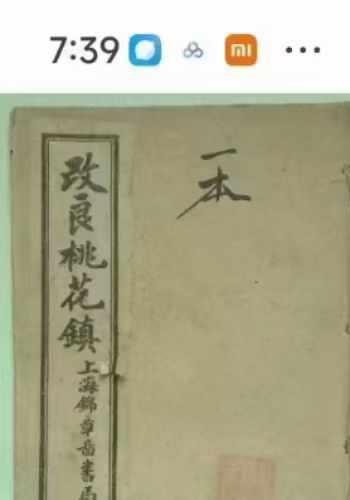 7:39
改良桃花鎮
上海錦章圖書局
一本